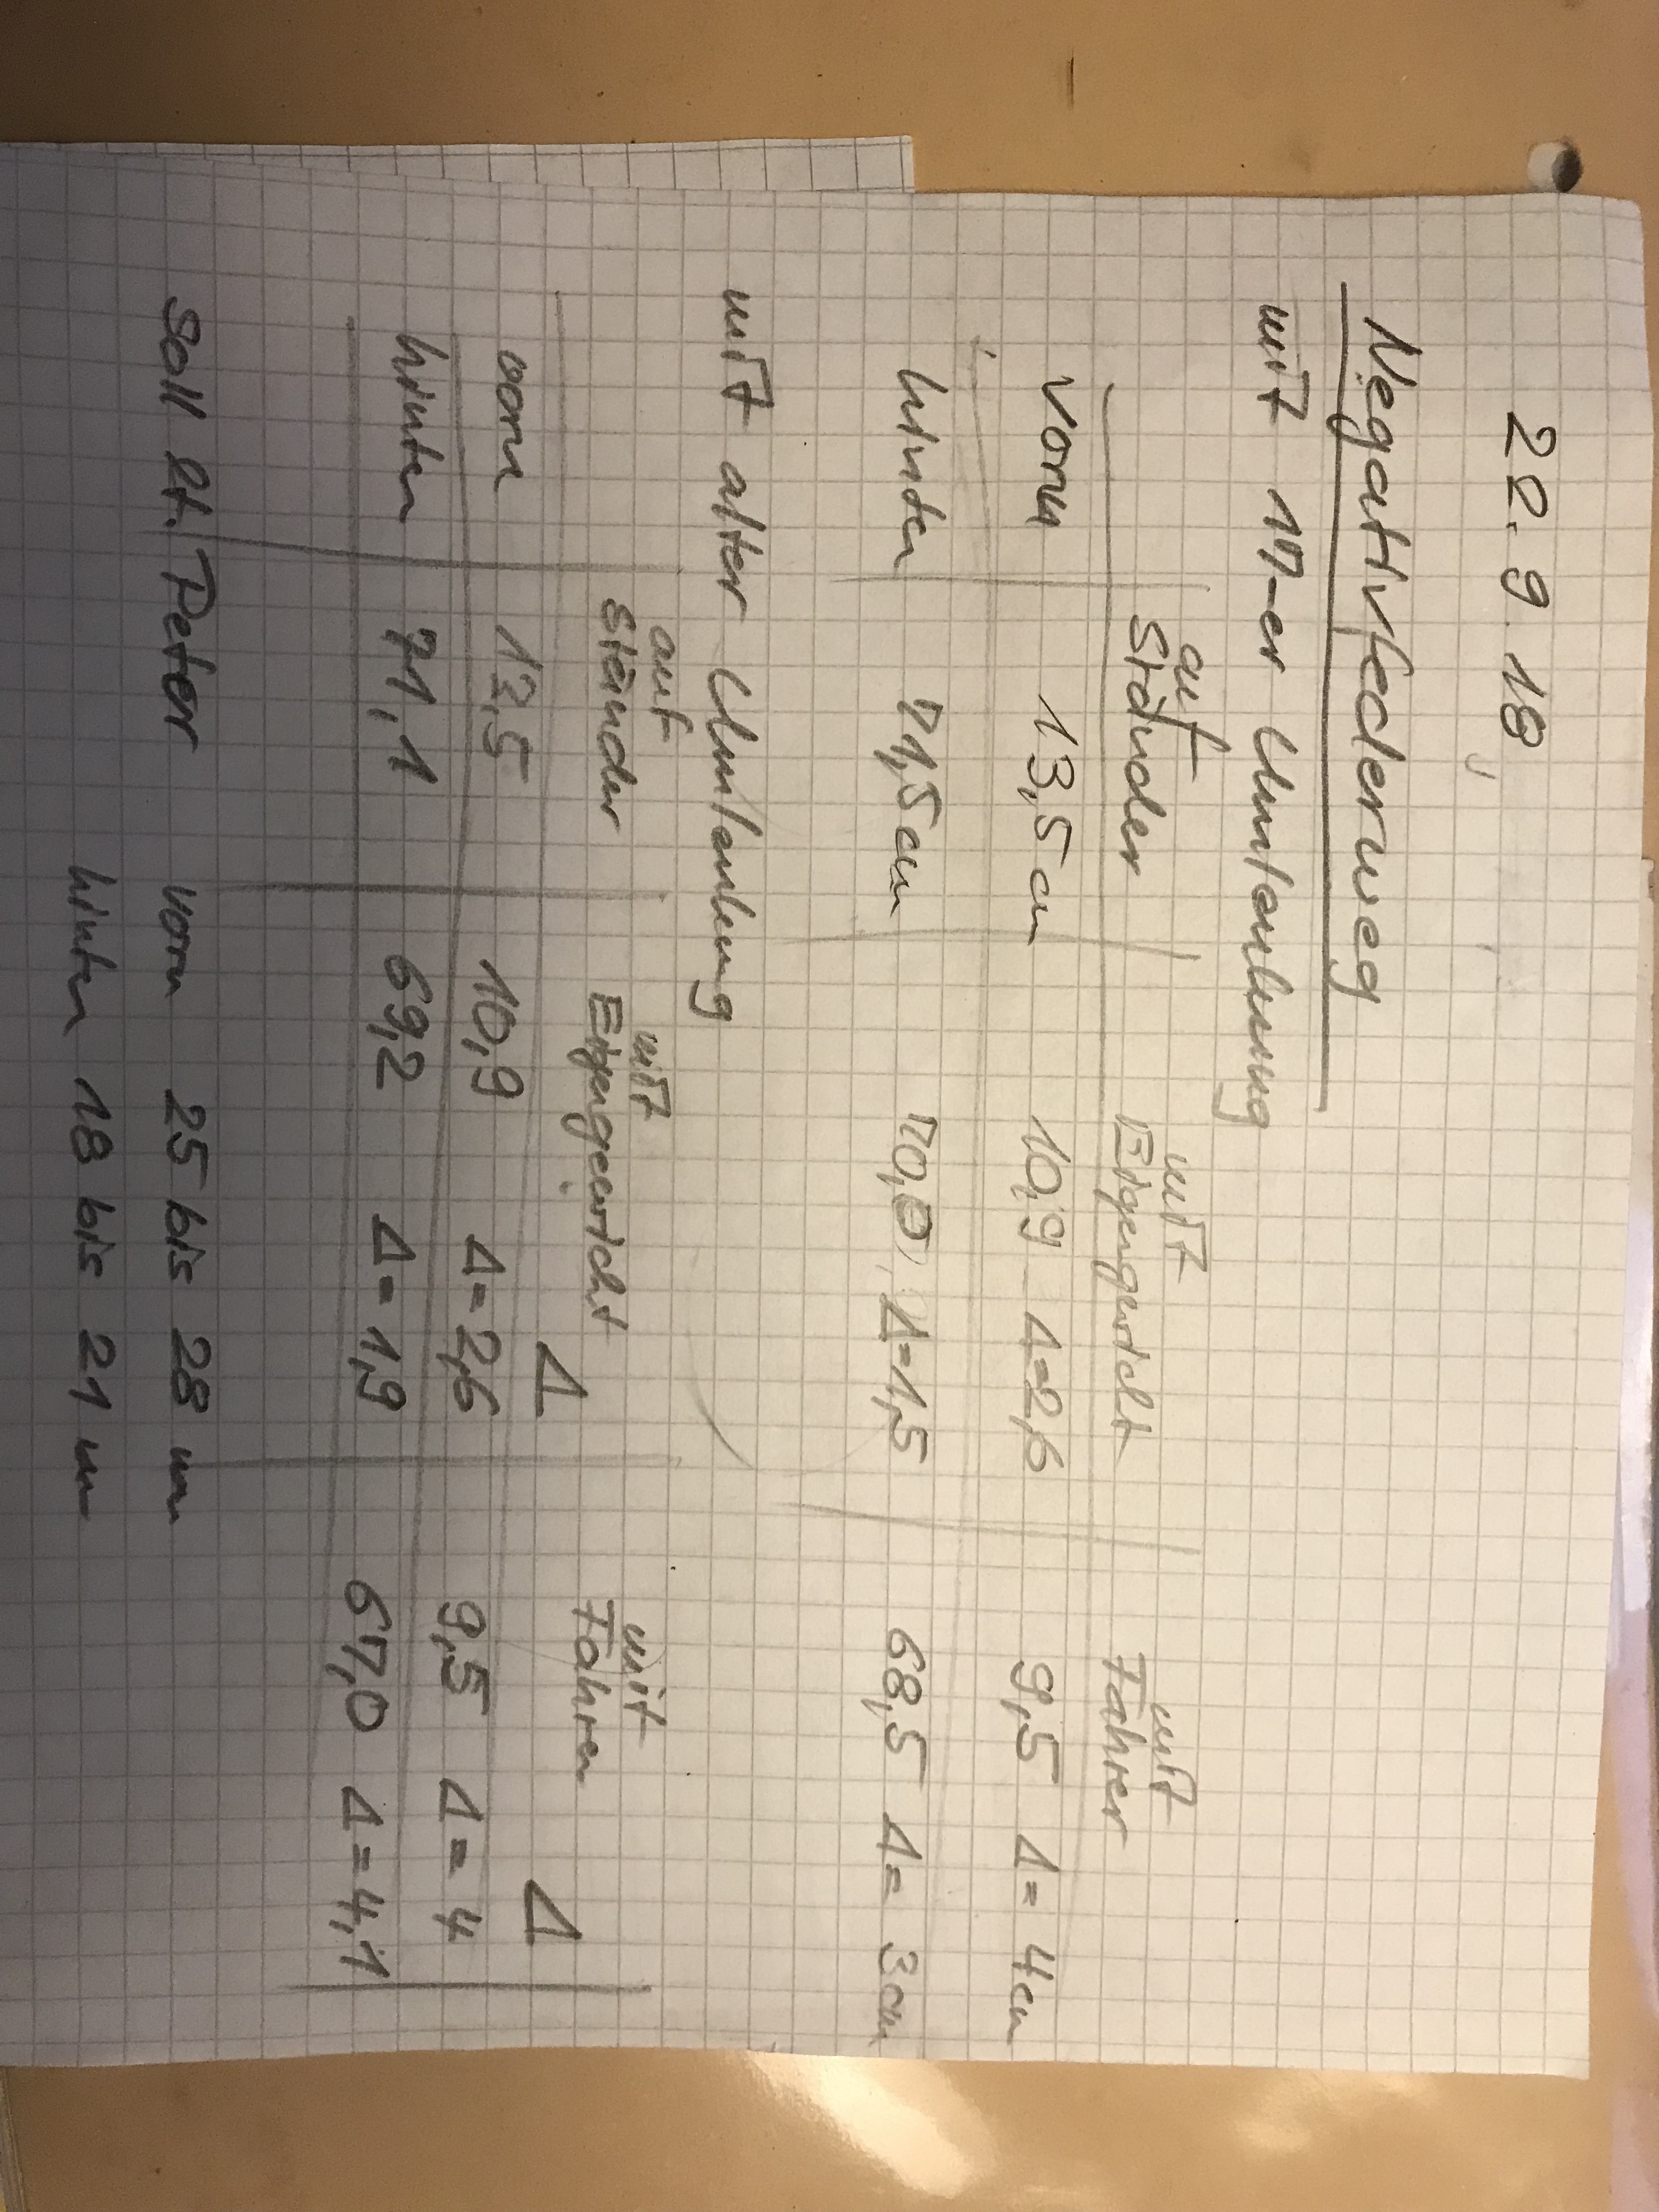 22.9.18
Negativfederweg
mit 17-er Umlenkung
auf Ständer mit Eigengewicht mit Fahrer
vorn 13,5 cm 10,9 Δ=2,6 9,5 Δ= 4cm
hinten 71,5 cm 70,0 Δ=1,5 68,5 Δ= 3cm
mit alter Umlenkung
auf Ständer mit Eigengewicht Δ mit Fahrer Δ
vorn 13,5 10,9 Δ=2,6 9,5 Δ=4
hinten 71,1 69,2 Δ=1,9 67,0 Δ=4,1
Soll lt. Peter vorn 25 bis 28 mm
hinten 18 bis 21 mm